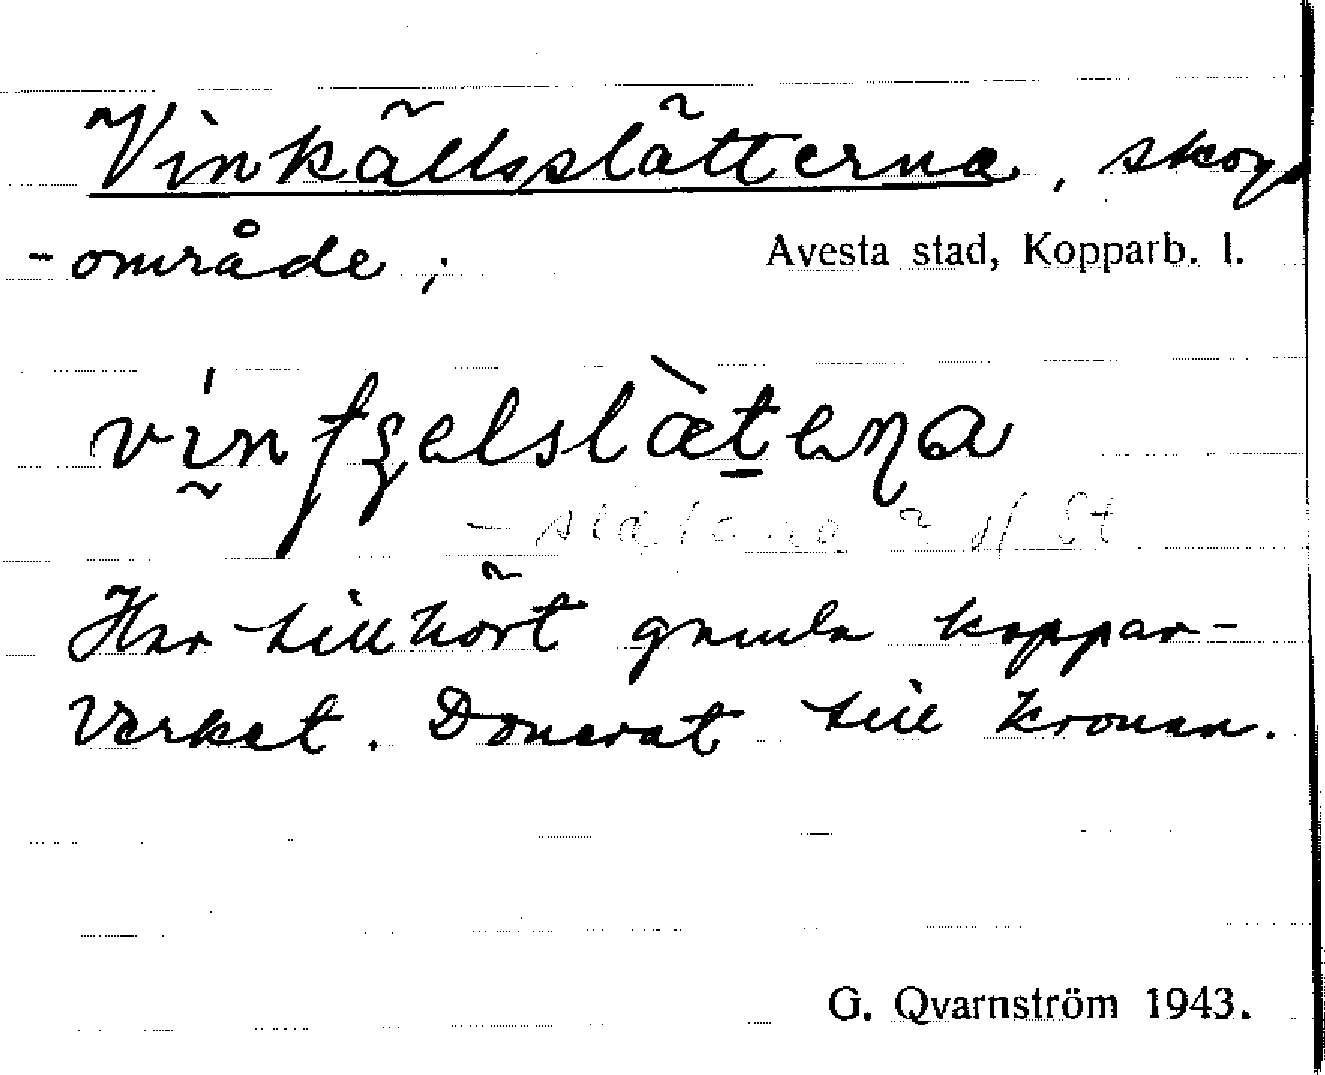 Vinkällsslätterna, skogs
-område;
Avesta stad, Kopparb. l.
Har tillhört gamla koppar-
verket. Donerat till kronan.
G. Qvarnström 1943.